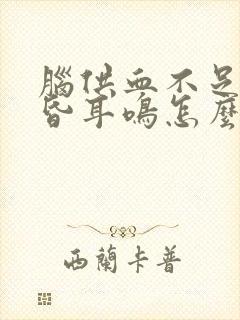 腦供血不足
昏耳鳴怎麼
西蘭卡普